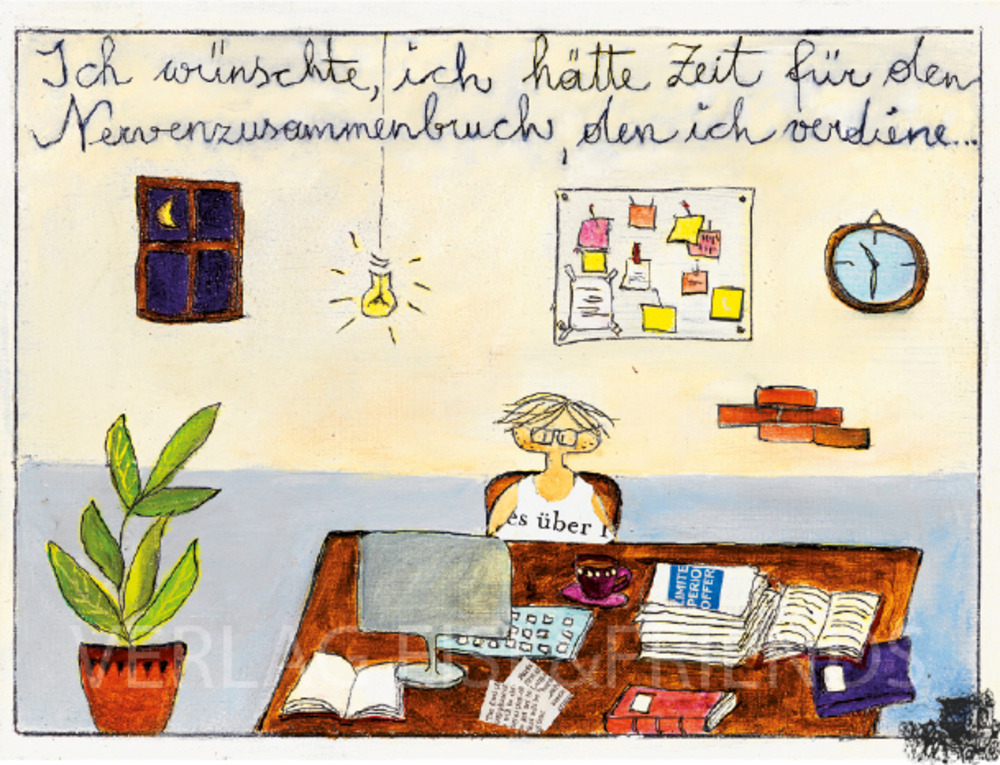 Ich wünschte, ich hätte Zeit für den
Nervenzusammenbruch, den ich verdiene...
es über
LIMITE
PERIO
OFFER
VERLAG &FRIENDS